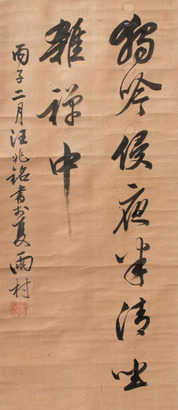 獨吟侵夜半清坐
雜禅中
丙子二月汪兆銘書於夏雨村